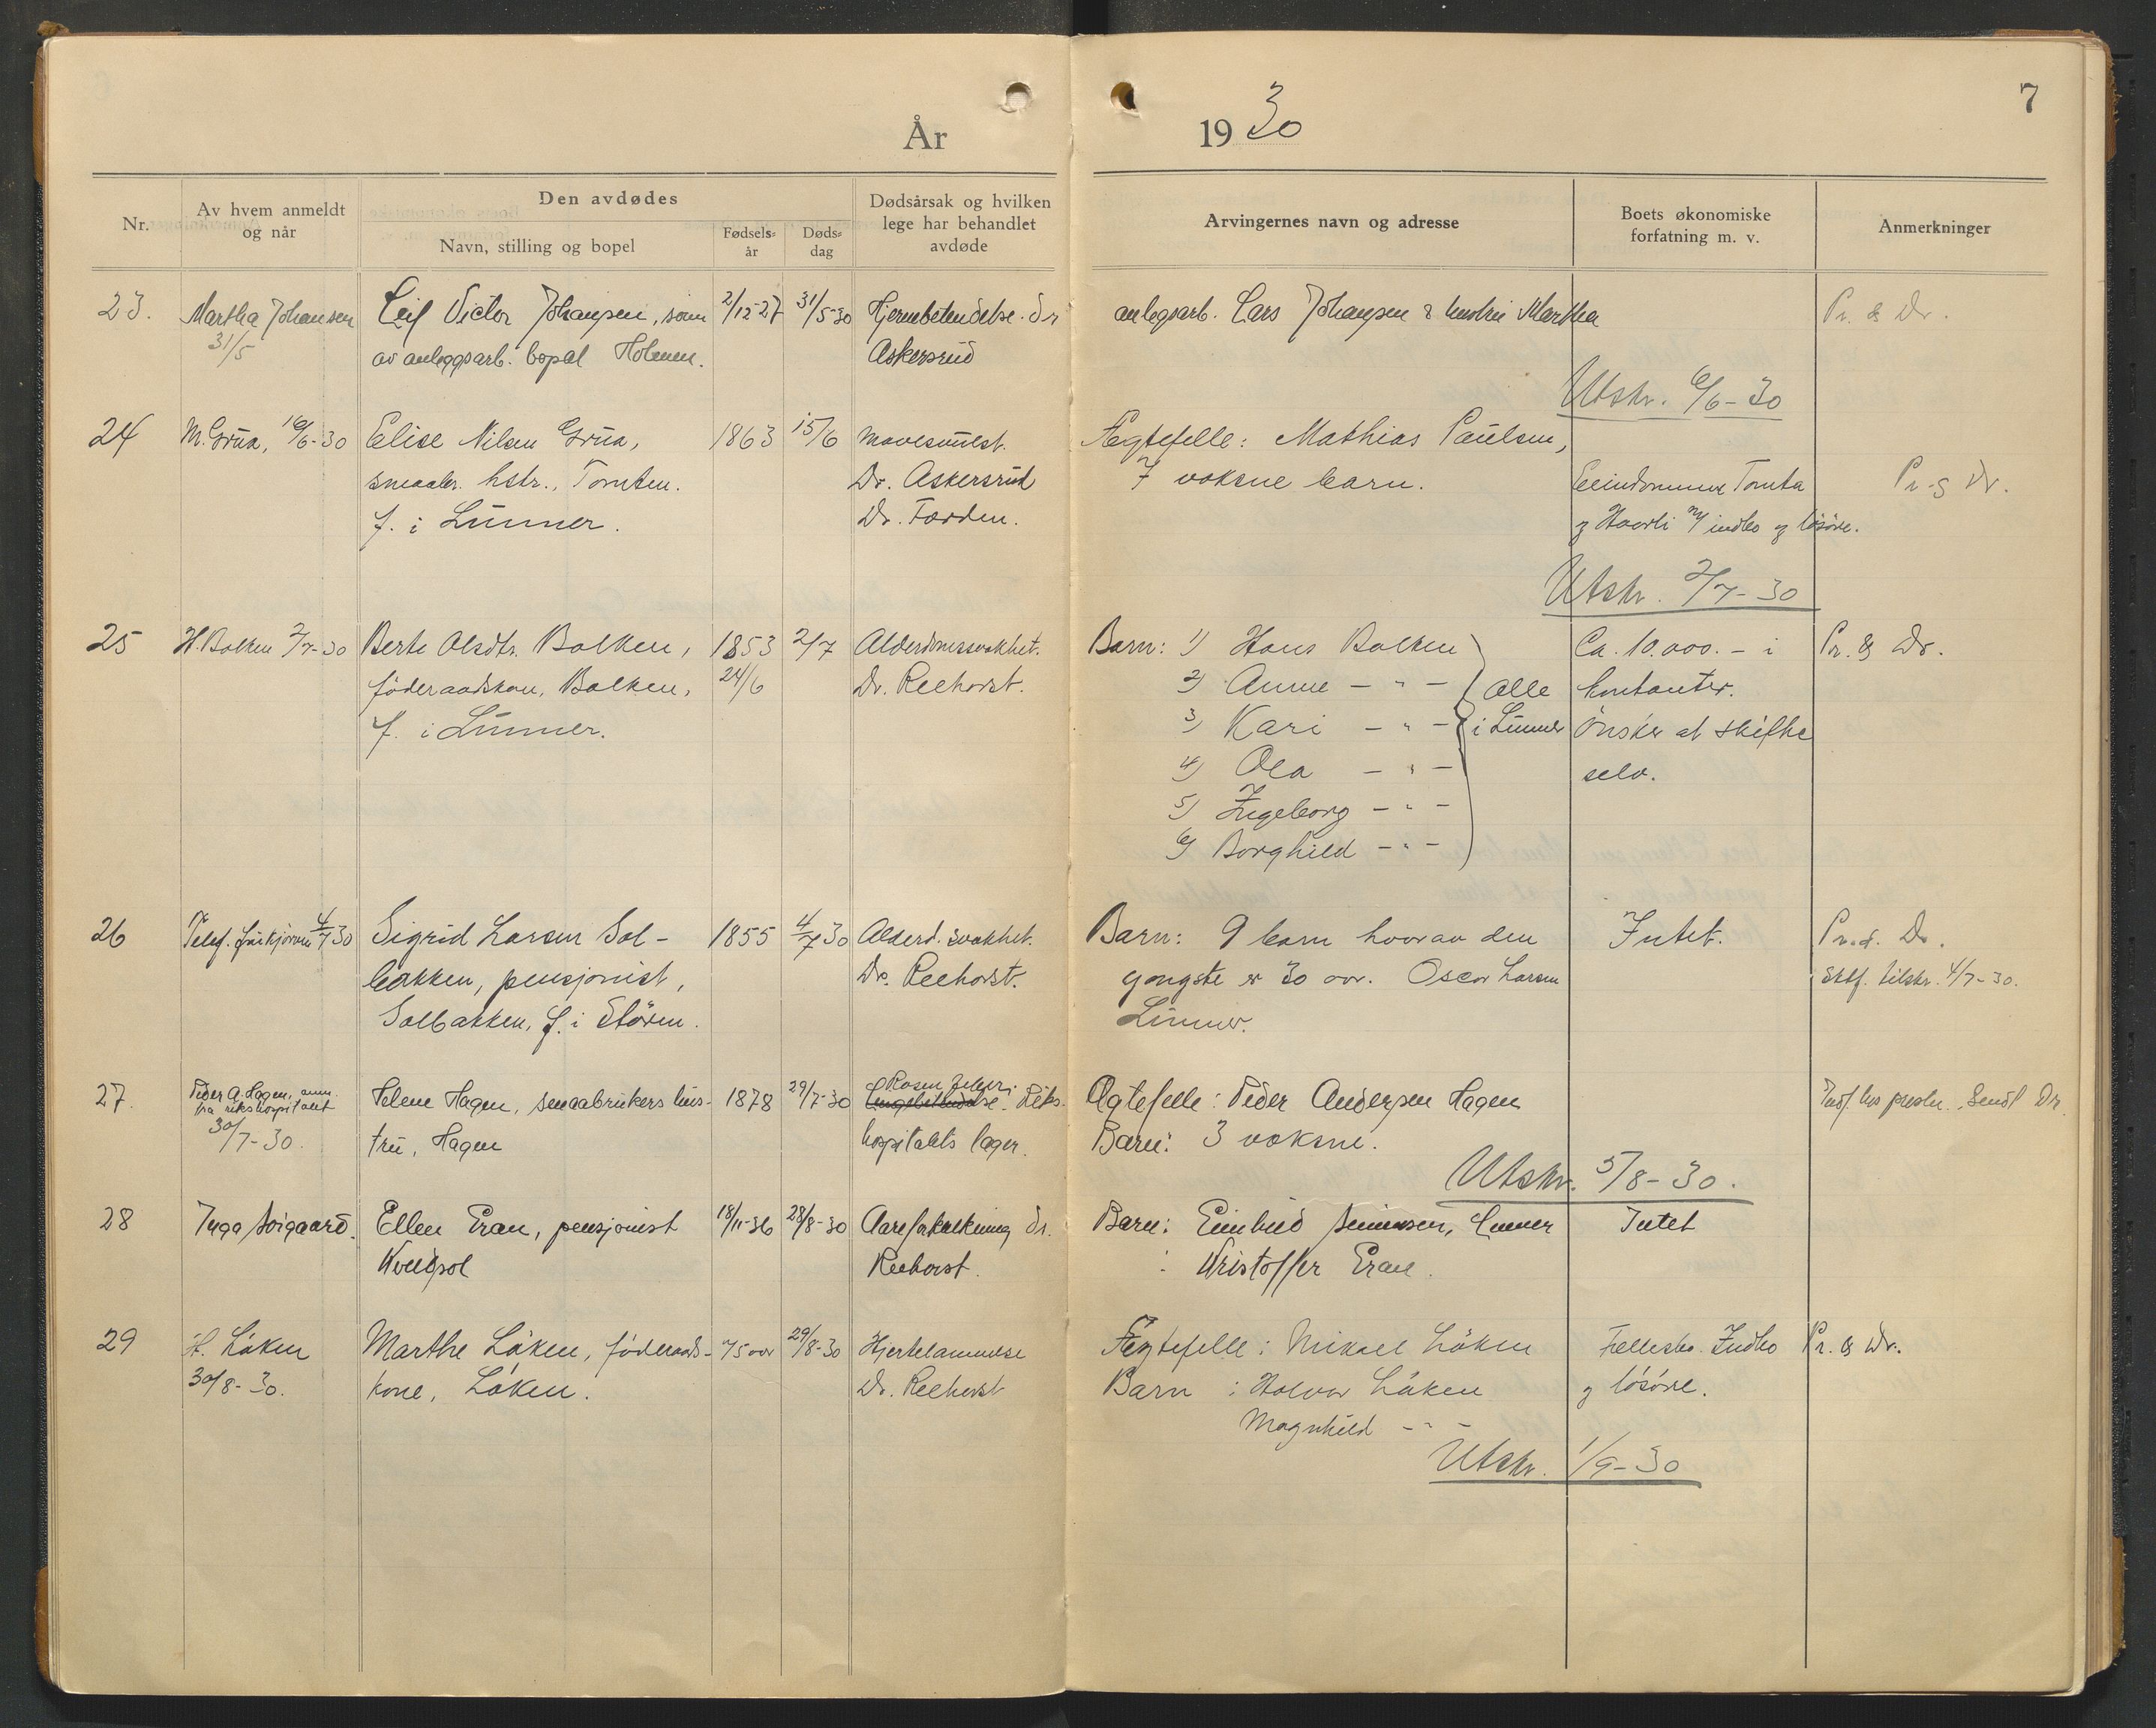 År 1930
7
Nr.
Av hvem anmeldt og når
Den avdødes
Navn, stilling og bopel
Fødsels-år
Døds-dag
Dødsårsak og hvilken lege har behandlet avdøde
Arvingernes navn og adresse
Boets økonomiske forfatning m. v.
Anmerkninger
23. Martha Johansen Leif Victor Johansen, søn 2/12-27 31/5-30 Hjernebetendelse. Dr anlegsarb. Lars Johansen & hustru Martha Pr. & Dr.
31/5 av anleggsarb. bopæl Holmen. Askersrud
Utskr. 6/6-30
24 M. Grua, 16/6-30 Elise Nilsen Grua, 1863 15/6 Mavesaar Ægtefelle: Mathias Paulsen,
smaabr. hstr., Tomten. Dr. Askersrud 7 voksne barn. Eiendommene Tomta Pr. & Dr.
f. i Lunner. Dr. Førden. og Haarli m/ indbo og løsøre.
Utskr. 2/7-30
25 H. Balken 2/7-30 Berte Olsdtr. Balken, 1853 2/7 Alderdomssvakhet. Barn: 1) Hans Balken Ca. 10.000.- i Pr. & Dr.
føderaadskone, Balken, 24/6 Dr. Reehorst. 2) Anne - " - alle kontanter.
f. i Lunner. 3) Kari - " - i Lunner Ønsker at skifte
4) Ola - " - selv.
5) Ingeborg - " -
6) Borghild - " -
26 Telef. 4/7 30 Sigrid Larsen Sol- 1855 4/7 30 Alderd. svakhet. Barn: 9 barn hvorav den Intet. Pr. & Dr.
bakken, pensjonist, Dr. Reehorst. yngste er 30 aar. Oscar Larsen tilskr. 4/7-30.
Solbakken, f. i Støren. Lunner.
27. Peder A. Hagen, anm. fra rikshospitalet Helene Hagen, smaabrukers hus- 1878 29/7-30 Rosen Riks- Ægtefelle: Peder Andersen Hagen Indf. hos presten. Sendt Dr.
30/7-30. tru, Hagen hospitalets læger. Barn: 3 voksne.
Utskr. 5/8-30.
28 Inga Roigaard. Ellen Eran, pensjonist 18/11-36 28/8-30 Aareforkalkning Dr. Barn: Simensen, Lunner Intet
Kveldsol Reehorst. " Kristoffer Eran.
29 H. Løken Marthe Løken, føderaads- 75 aar 29/8-30 Hjertelammelse Ægtefelle: Mikael Løken Fellesbo. Indbo Pr. & Dr.
30/8-30. kone, Løken. Dr. Reehorst Barn: Halvor Løken og løsøre.
Magnhild - " -
Utskr. 1/9-30